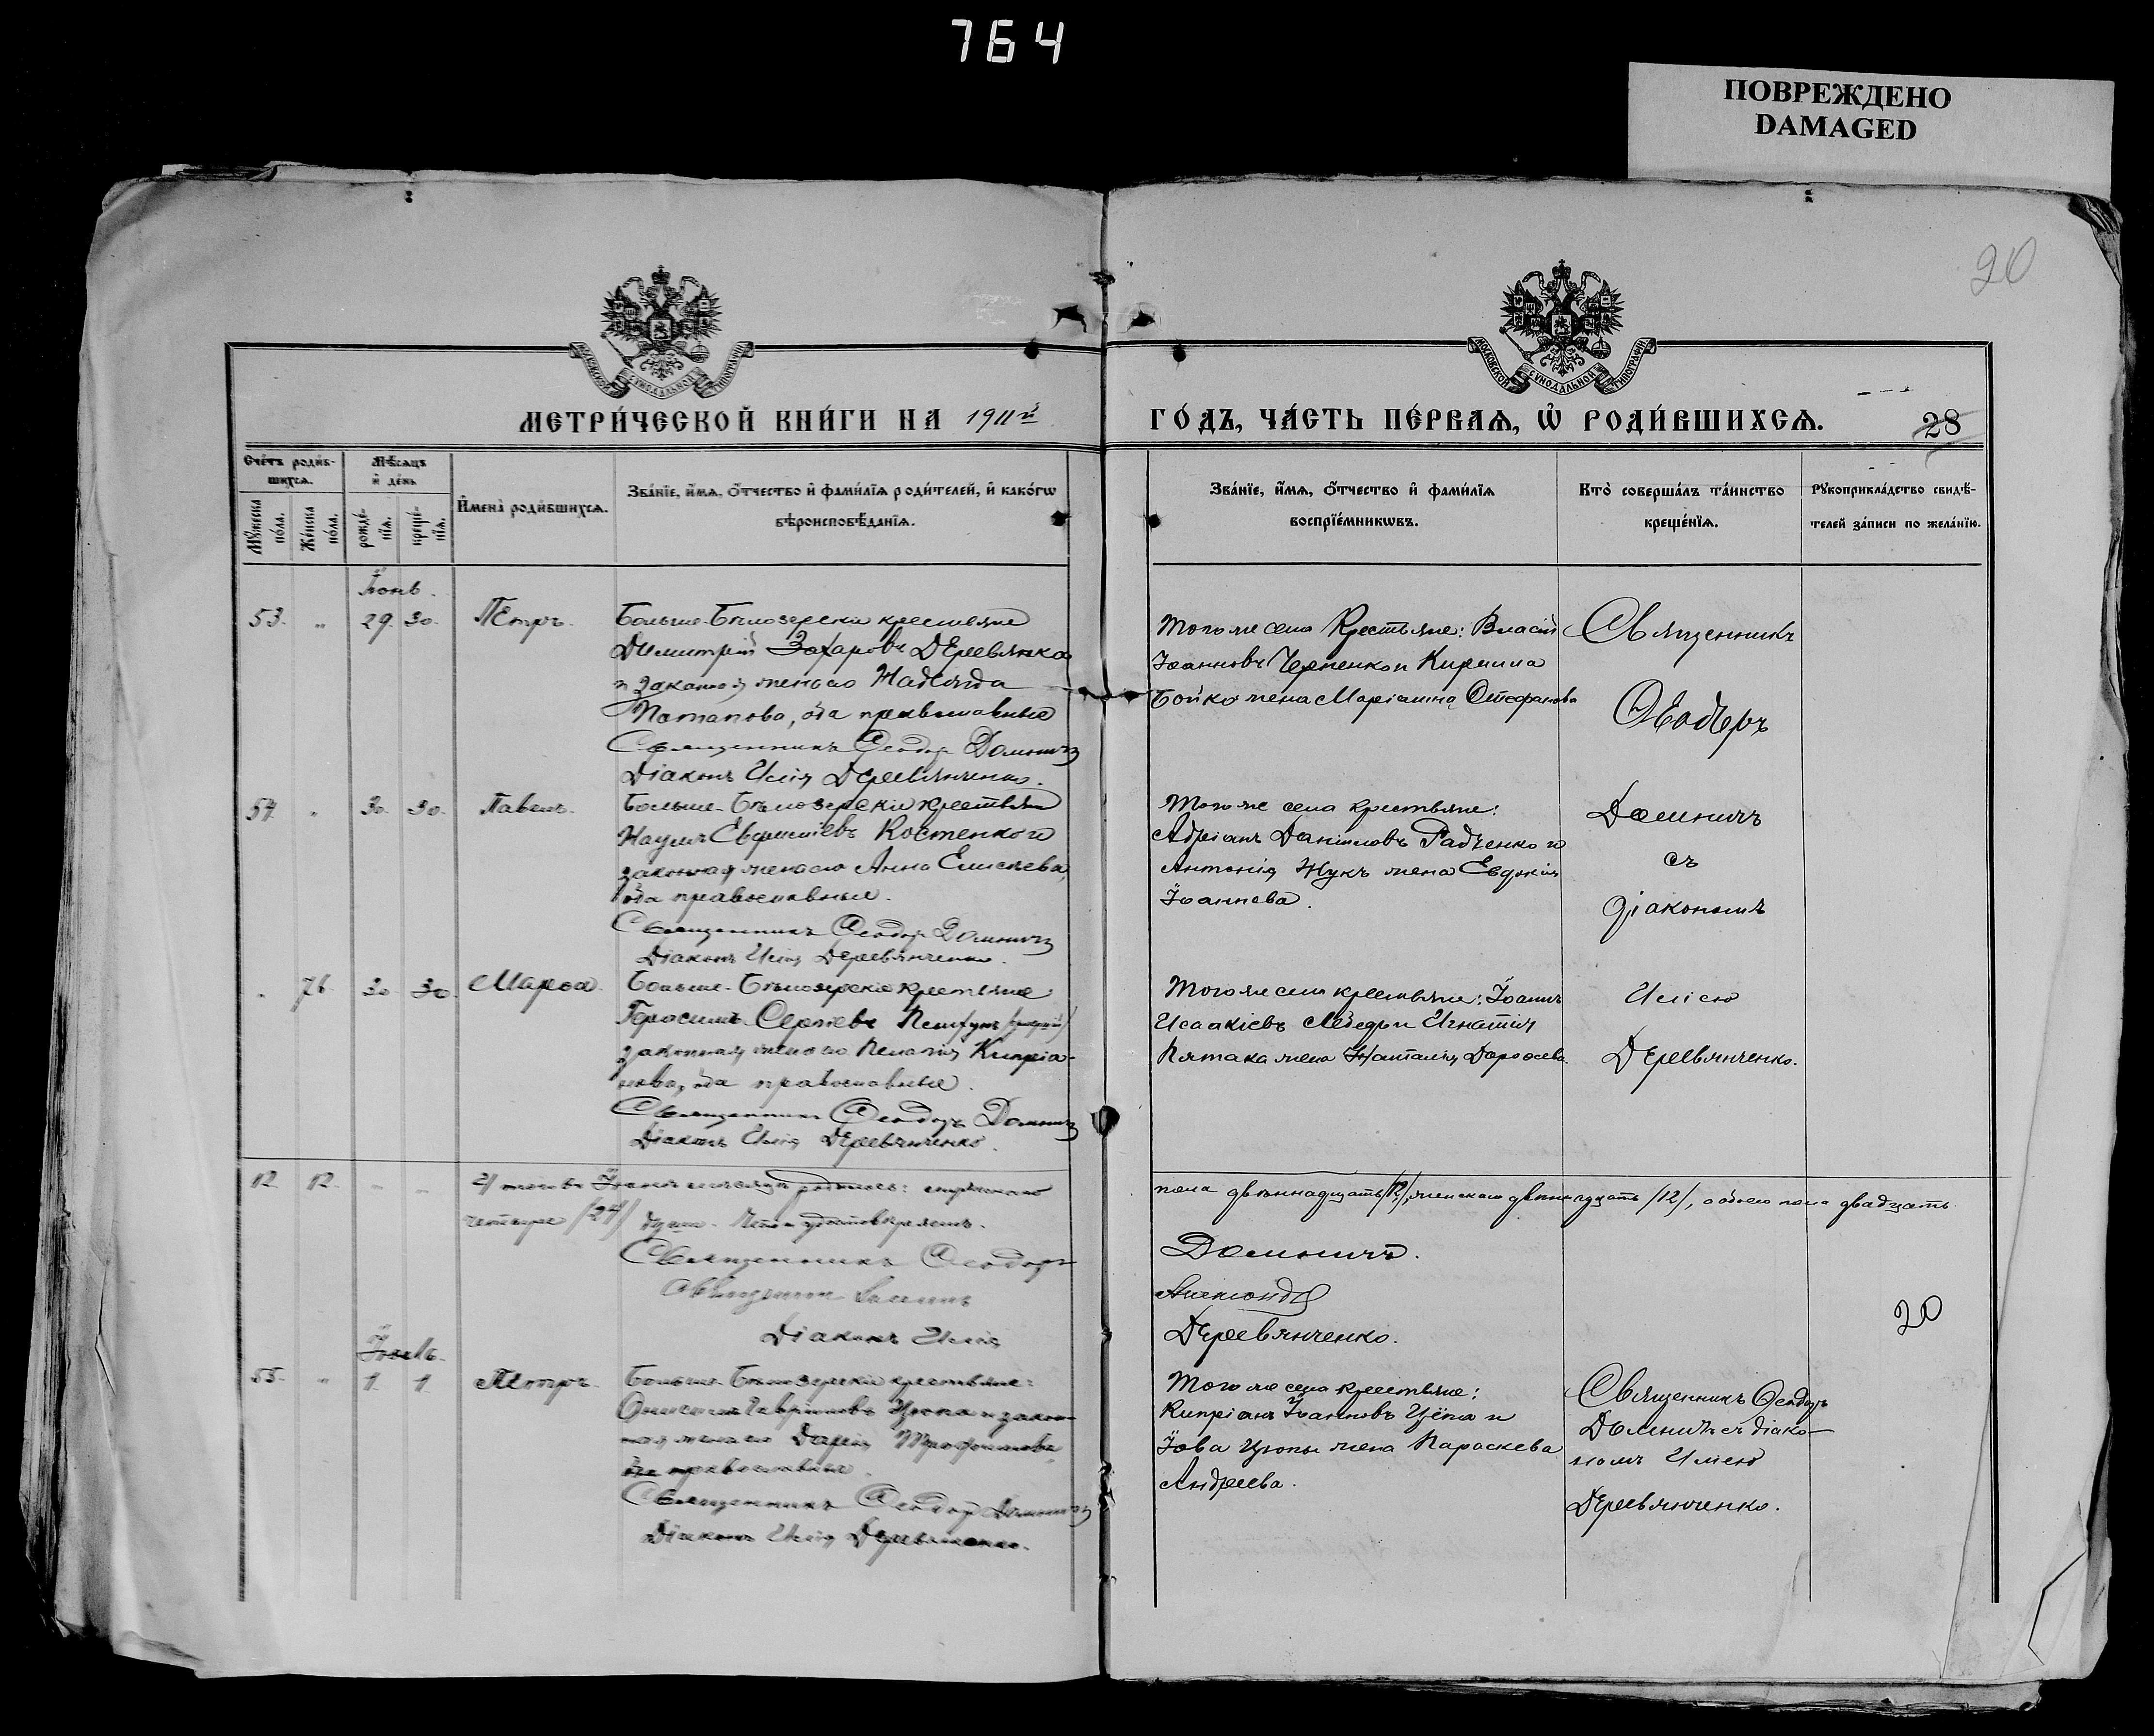 764
ПОВРЕЖДЕНО
DAMAGED
20
МОСКОВСКОЙ СУНОДАЛЬНОЙ ТИПОГРАФІИ
МОСКОВСКОЙ СУНОДАЛЬНОЙ ТИПОГРАФІИ
МЕТРИ́ЧЕСКОЙ КНИ́ГИ НА 1911й
ГО́ДЪ, ЧА́СТЬ ПЕ́РВАѦ, Ѡ РОДИ́ВШИХСѦ.
28
Сче́тъ роди́в-
шихсѧ.
Мѣ́сѧцъ
и де́нь
Мꙋ́жеска по́ла.
Же́нска по́ла.
рожде́-нїѧ.
креще́-нїѧ.
И҆мена̀ роди́вшихсѧ.
Зва́нїе, и҆́мѧ, ѻ҆́тчество и҆ фами́лїѧ роди́телей, и҆ како́гѡ
вѣроисповѣ́данїѧ.
Зва́нїе, и҆́мѧ, ѻ҆́тчество и҆ фами́лїѧ
воспрїе́мникѡвъ.
Кто̀ соверша́лъ та́инство
креще́нїѧ.
Рꙋкоприкла́дство свидѣ́-
телей за́писи по жела́нїю.
Іюнь.
53. " 29. 30. Петръ.
Больше-Бѣлозерскіе крестьяне
Димитрій Захаровъ Деревянко
и законная жена его Надежда
Потапова, оба православные
Священникъ Ѳеодоръ Домничъ
Діаконъ Илія Деревянченко.
Того же села Крестьяне: Власій
Іоанновъ Черненко и Кирилла
Бойко жена Маріанна Стефанова
Священникъ
Ѳеодоръ
54. " 30. 30. Павелъ.
Больше-Бѣлозерскіе крестьяне
Наумъ Евфиміевъ Костенко и
законная жена его Анна Елисѣева,
оба православные.
Священникъ Ѳеодоръ Домничъ
Діаконъ Илія Деревянченко.
Того же села крестьяне:
Адріанъ Даніиловъ Радченко и
Антонія Жукъ жена Евдокія
Іоаннова.
Домничъ
съ
діакономъ
" 76. 30. 30. Марѳа.
Больше-Бѣлозерскіе крестьяне
Герасимъ Сергіевъ
законная жена его Пелагія Кипріа-
нова, оба православные.
Священникъ Ѳеодоръ Домничъ
Діаконъ Илія Деревянченко.
Того же села крестьяне: Іоаннъ
Исаакіевъ Лебедь и Игнатія
Пятака жена Наталія Дороѳеева.
Иліею
Деревянченко.
12. 12. " " Итого въ Іюнѣ мѣсяцѣ родилось: мужскаго
пола двѣнадцать /12/, женскаго двѣнадцать /12/, обоего пола двадцать
четыре /24/ душ. удостовѣряемъ.
Священникъ Ѳеодоръ
Домничъ.
Діаконъ Илія
Деревянченко.
20
Іюль.
55. " 1. 1. Петръ.
Больше-Бѣлозерскіе крестьяне:
Онисимъ Гавріиловъ Цюпа и закон-
ная жена его Дарія Трофимова,
оба православные.
Священникъ Ѳеодоръ Домничъ
Діаконъ Илія Деревянченко.
Того же села крестьяне:
Кипріанъ Іоанновъ Цюпа и
Іова Цюпы жена Параскева
Андреева.
Священникъ Ѳеодоръ
Домничъ съ діако-
номъ Иліею
Деревянченко.